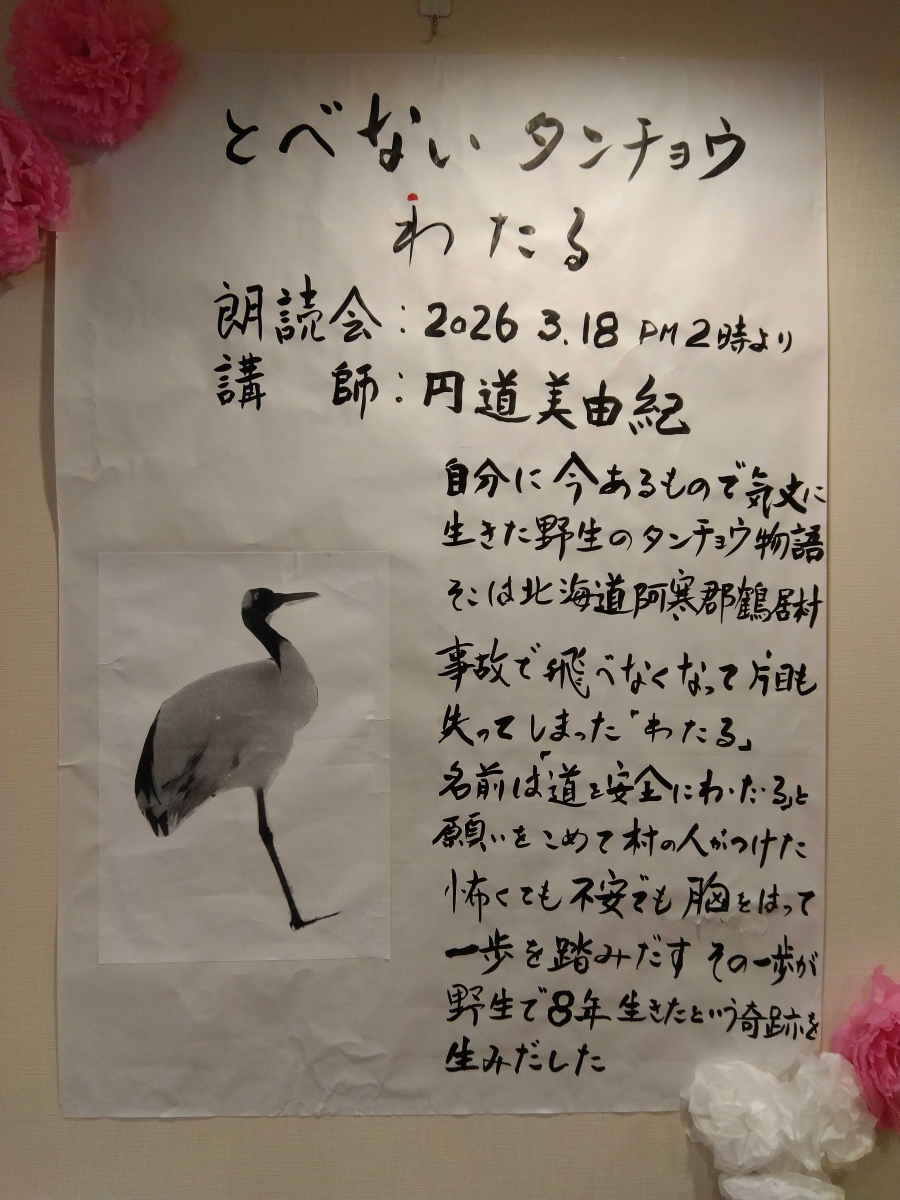 とべない タンチョウ
わたる
朗読会：2026 3.18 PM 2時より
講　師：円道美由紀
自分に今あるもので気丈に
生きた野生のタンチョウ物語
そこは北海道阿寒郡鶴居村
事故で飛べなくなって片目も
失ってしまった「わたる」
名前は「道を安全にわたる」と
願いをこめて村の人がつけた
怖くても不安でも胸をはって
一歩を踏みだす その一歩が
野生で8年生きたという奇跡を
生みだした